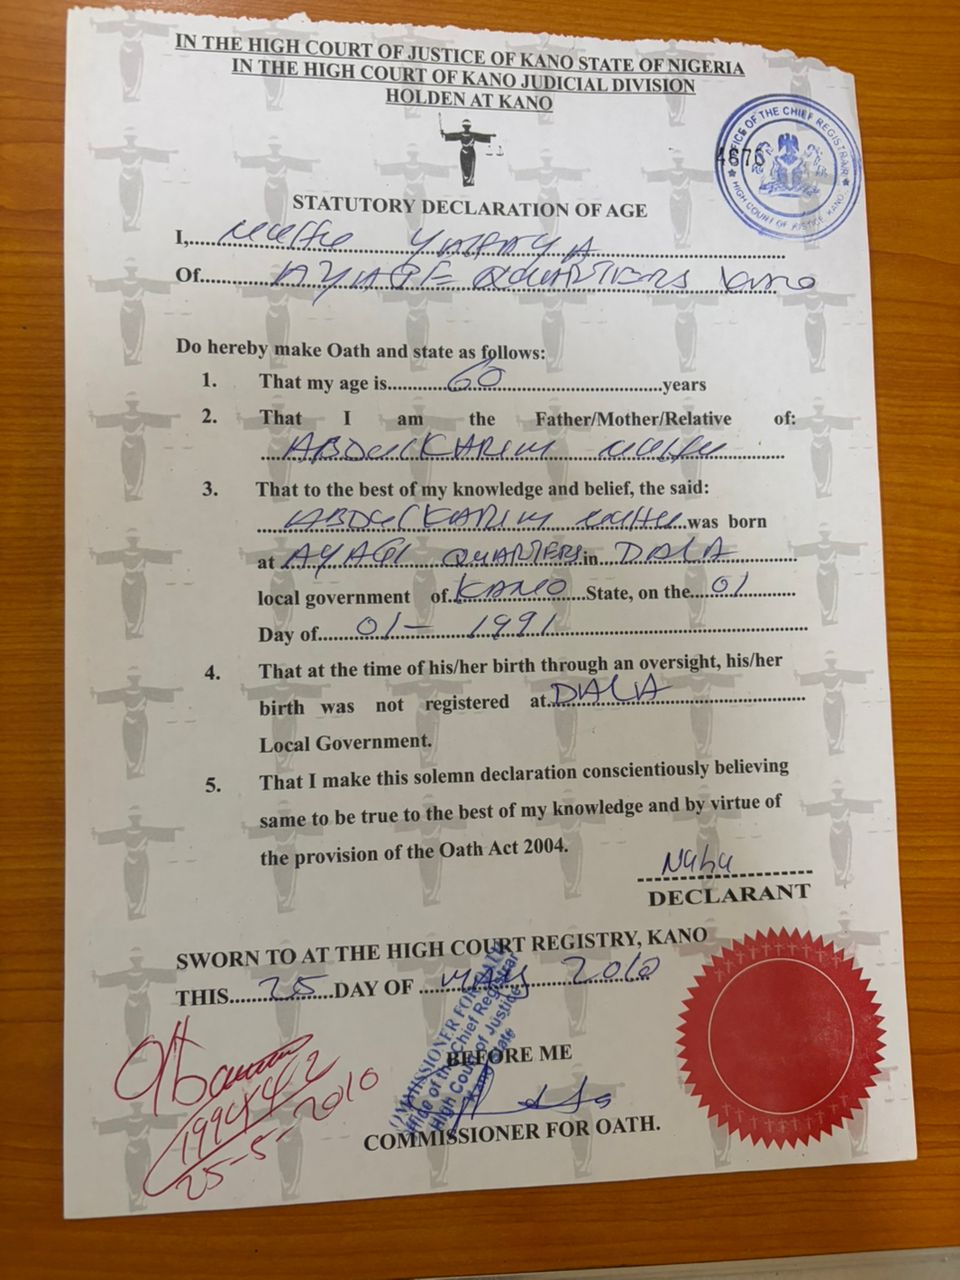 IN THE HIGH COURT OF JUSTICE OF KANO STATE OF NIGERIA
IN THE HIGH COURT OF KANO JUDICIAL DIVISION
HOLDEN AT KANO
OFFICE OF THE CHIEF REGISTRAR
HIGH COURT OF JUSTICE, KANO.
4676
STATUTORY DECLARATION OF AGE
I,
Of AYAGI QUARTIERS KANO
Do hereby make Oath and state as follows:
1. That my age is 60 years
2. That I am the Father/Mother/Relative of:
ABDULKARIM
3. That to the best of my knowledge and belief, the said:
ABDULKARIM was born
at AYAGI QUARTIERS in DALA
local government of KANO State, on the 01
Day of 01- 1991
4. That at the time of his/her birth through an oversight, his/her
birth was not registered at DALA
Local Government.
5. That I make this solemn declaration conscientiously believing
same to be true to the best of my knowledge and by virtue of
the provision of the Oath Act 2004.
DECLARANT
SWORN TO AT THE HIGH COURT REGISTRY, KANO
THIS 25 DAY OF MAY 2010
COMMISSIONER FOR OATH
Office of the Chief Registrar
High Court of Justice
Kano State
BEFORE ME
COMMISSIONER FOR OATH.
25-5-2010